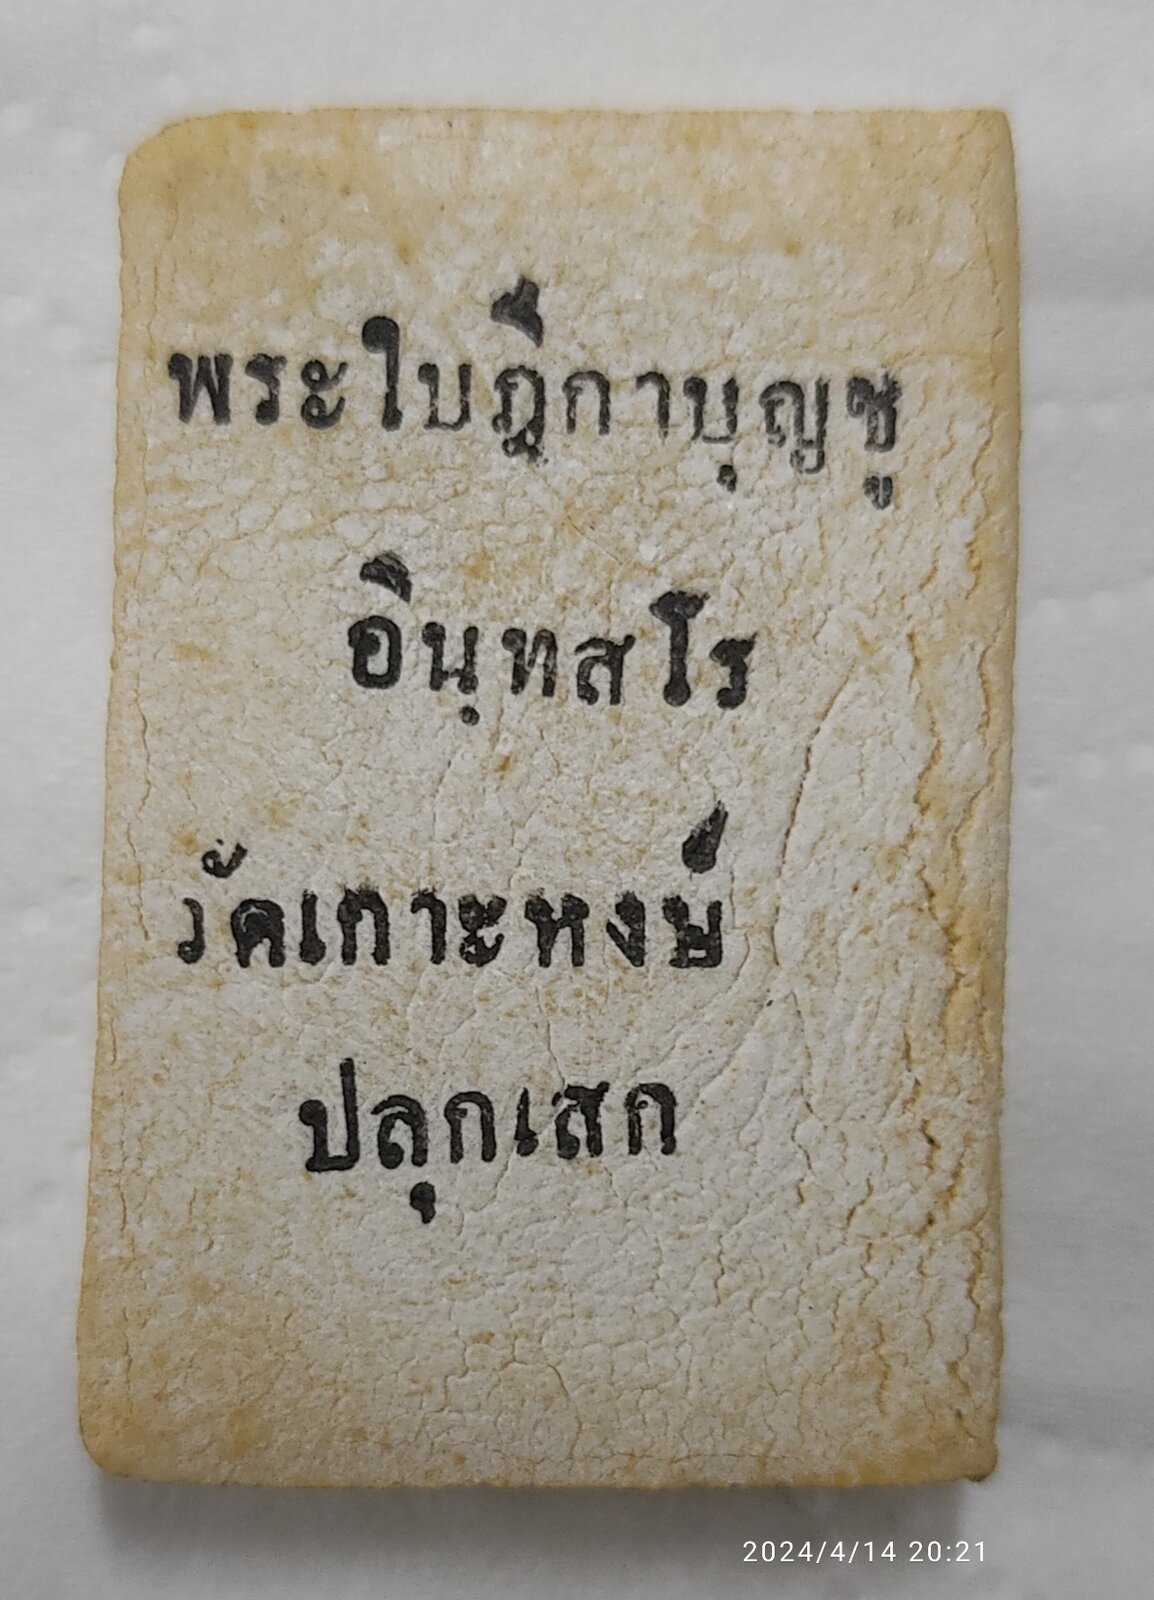 พระใบฎีกาบุญชู
อินฺทสโร
วัดเกาะหงษ์
ปลุกเสก
2024/4/14 20:21